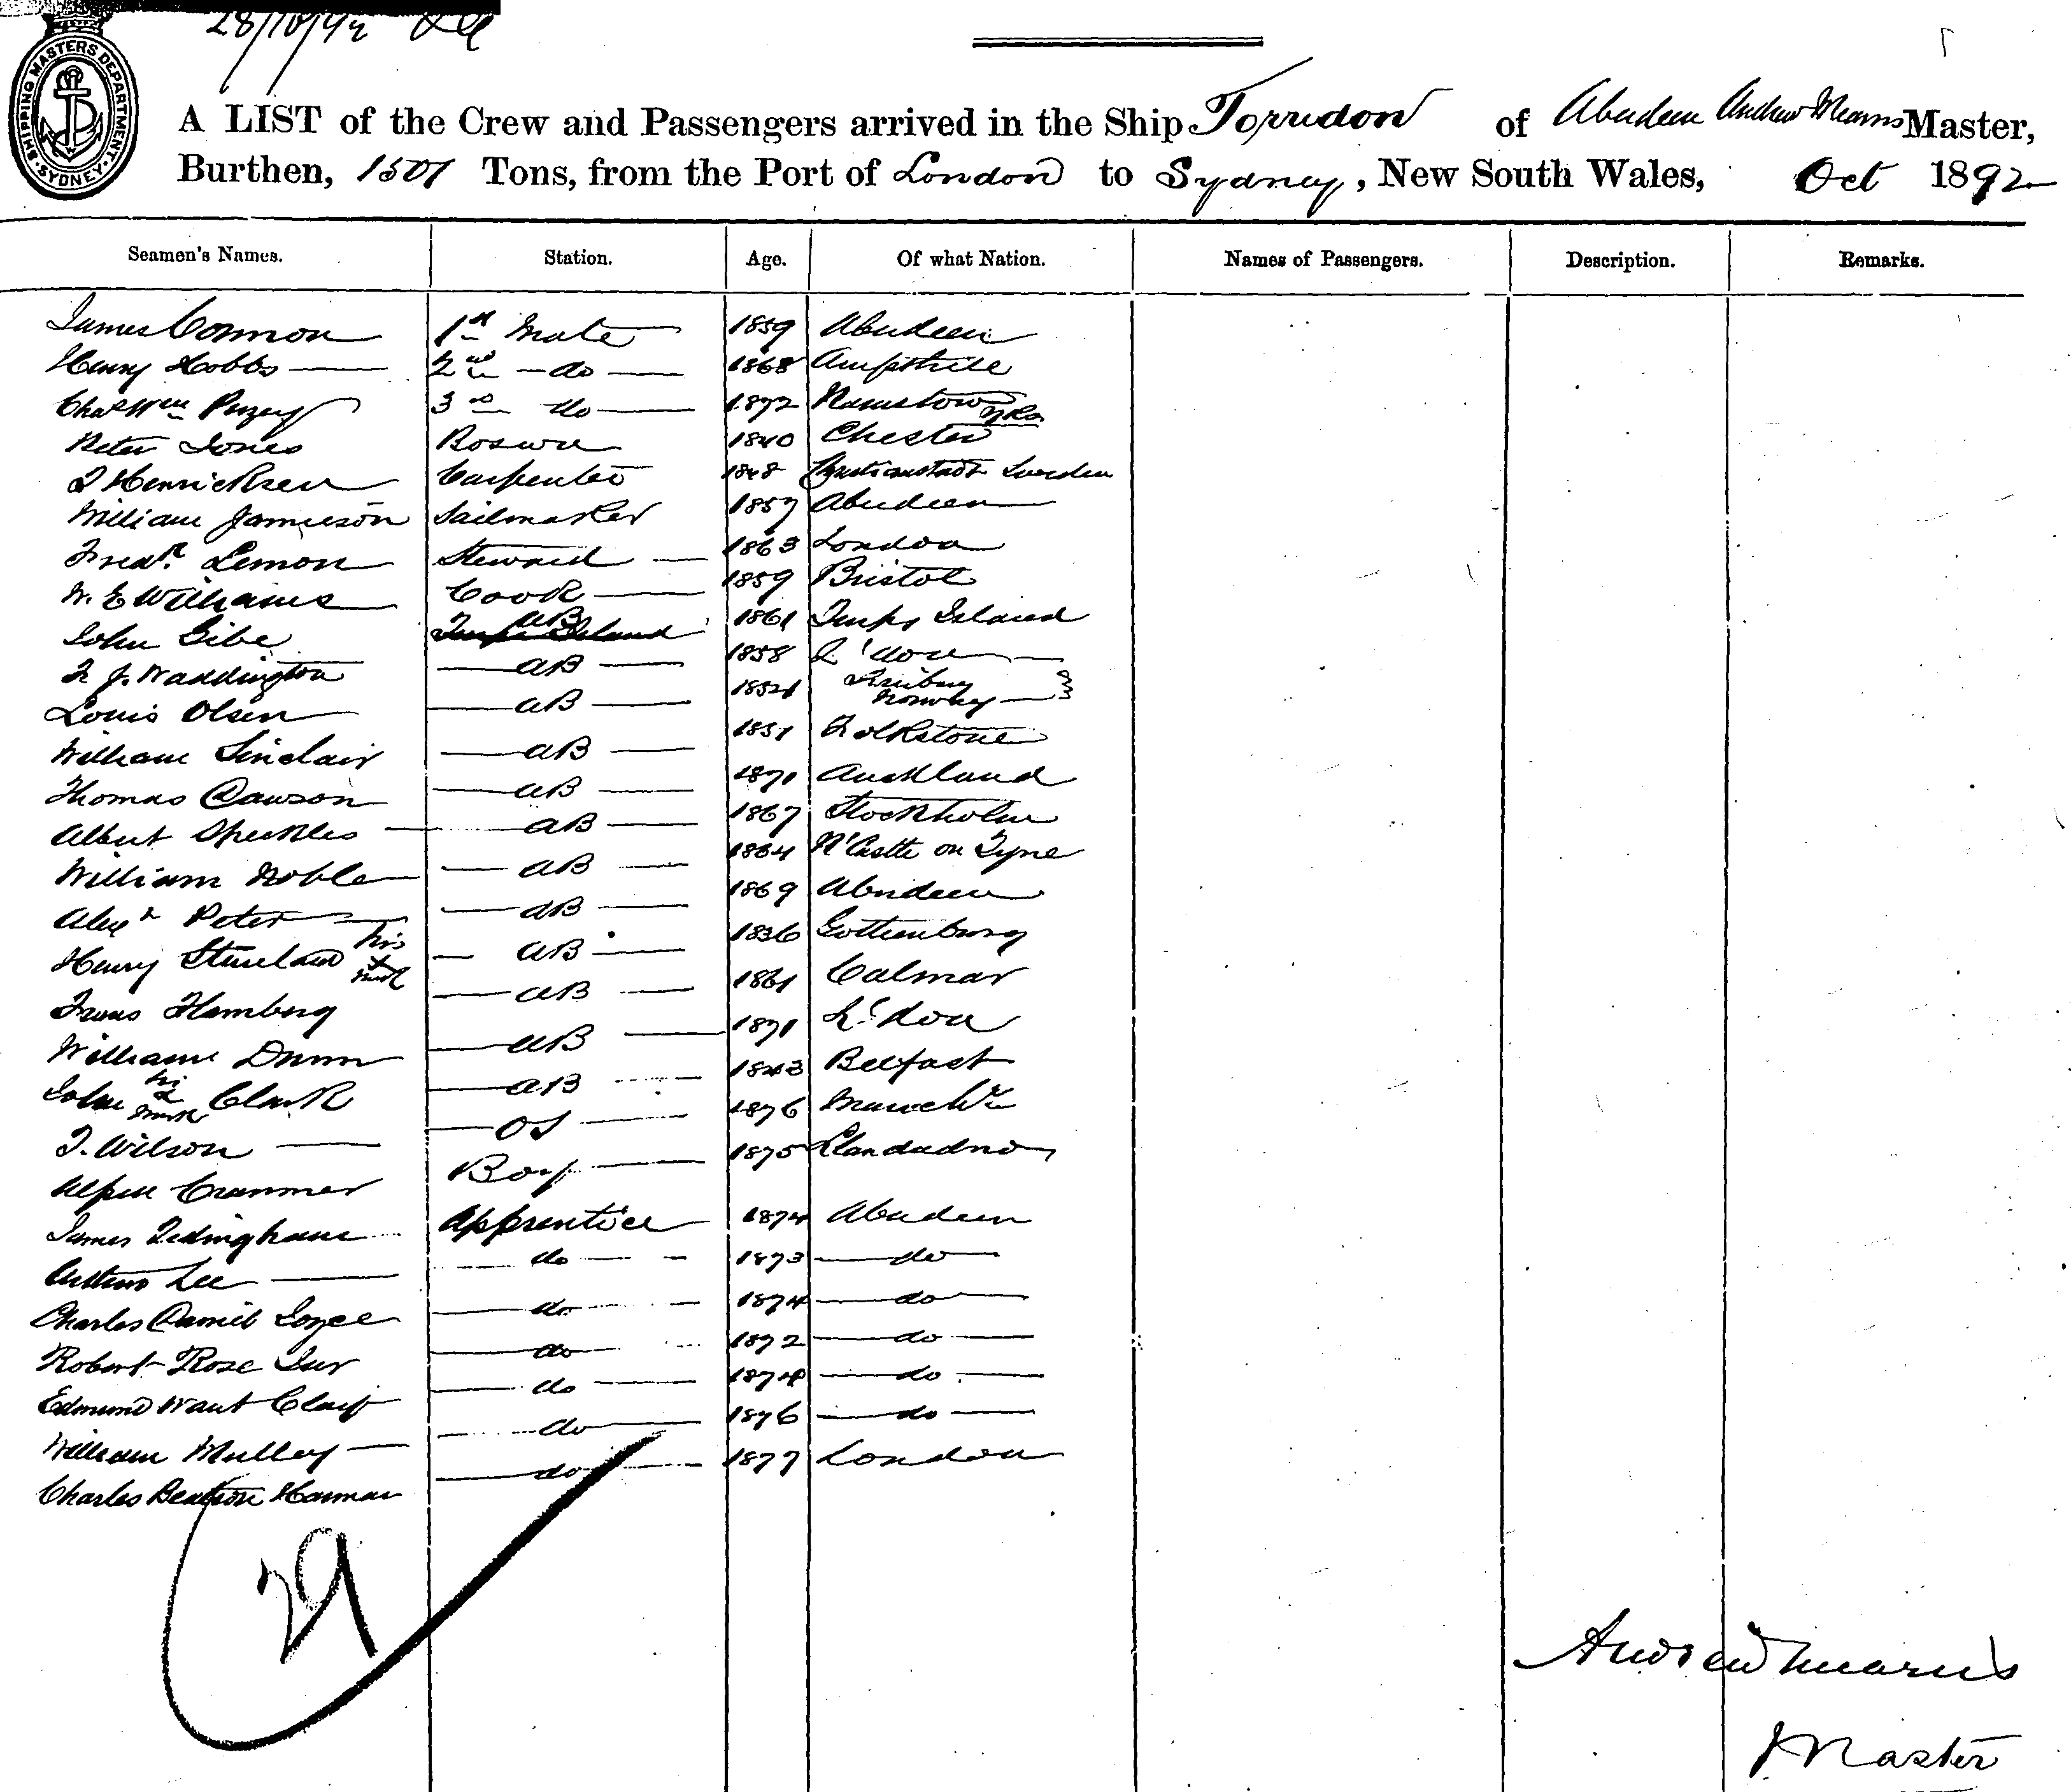 28/10/92
SHIPPING MASTERS DEPARTMENT SYDNEY
A LIST of the Crew and Passengers arrived in the Ship Torridon of Aberdeen Andrew Mearns Master,
Burthen, 1501 Tons, from the Port of London to Sydney, New South Wales, Oct 1892
Seamen's Names. Station. Age. Of what Nation. Names of Passengers. Description. Remarks.
James Common 1st Mate 1859 Aberdeen
Henry Hobbs 2nd do 1868 Ampthill
Chas Wm 3rd do 1872
Peter Jones Bosun 1840 Chester
Henricksen Carpenter 1848 Christianstadt Sweden
William Jamieson Sailmaker 1857 Aberdeen
Fredk Lemon Steward 1863 London
W. E Williams Cook 1859 Bristol
John AB 1861 Island
J. Waddington AB 1858 L'don
Louis Olsen AB 1852 Norway
William Sinclair AB 1857 Folkstone
Thomas Dawson AB 1871 Auckland
Albert AB 1867 Stockholm
William Noble AB 1864 N'Castle on Tyne
Alexr Peter AB 1869 Aberdeen
Henry his x mark AB 1836 Gottenburg
Frans Hamberg AB 1861 Calmar
William Dunn AB 1871 L'don
John his x mark Clark AB 1843 Belfast
J. Wilson OS 1876
Cranmer Boy 1875 Llandudno
James Apprentice 1874 Aberdeen
Arthur Lee do 1873 do
Charles Daniel Joyce do 1874 do
Robert Rose do 1872 do
Edmund do 1874 do
William Mulley do 1876 do
Charles Harman do 1877 London
29
Andrew Mearns
Master